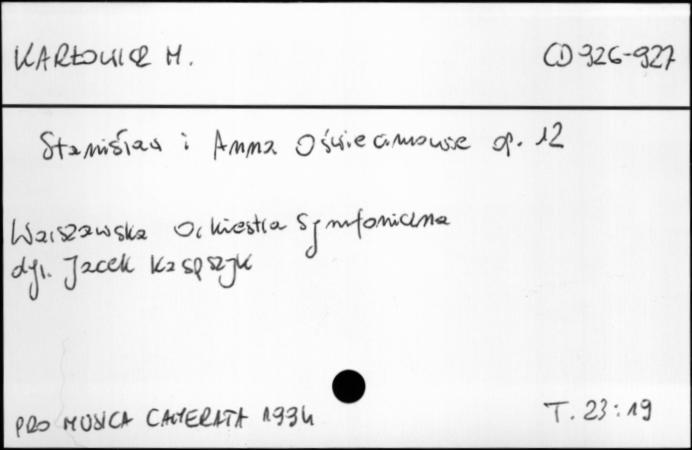 KARŁOWICZ M. CD 926-927
Stanisław i Anna Oświecimowie op. 12
Warszawska Orkiestra Symfoniczna
dyr. Jacek Kaspszyk
PRO MUSICA CAMERATA 1994 T. 23:19